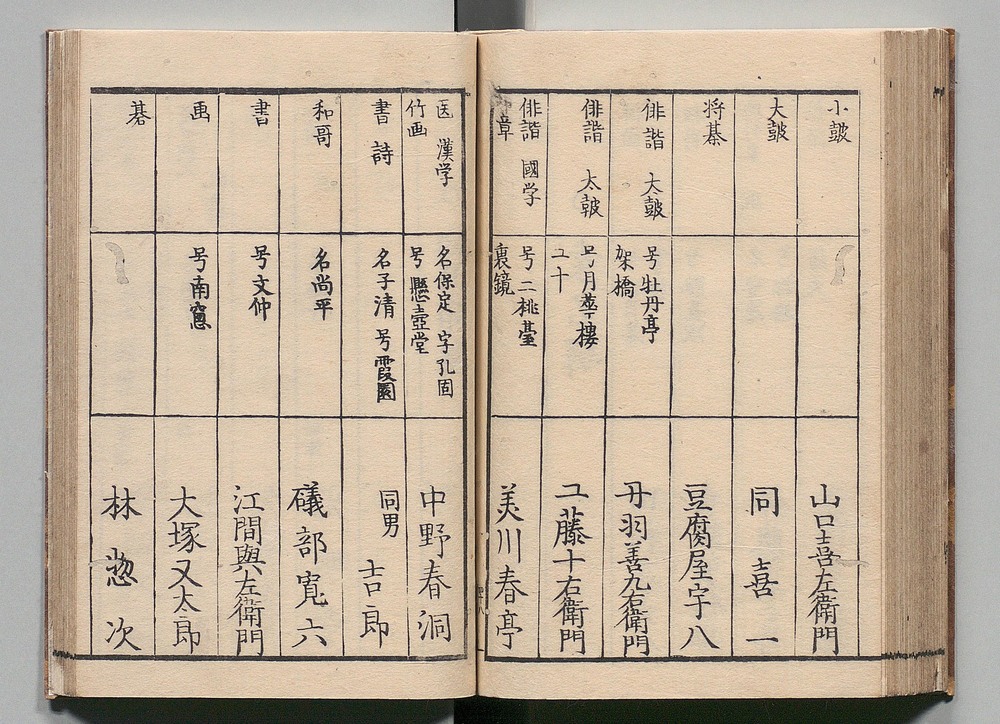 小皷
山口喜左衛門
大皷
同 喜一
将棊
豆腐屋宇八
俳諧 大皷
号牡丹亭
架橋
丹羽善九右衛門
俳諧 太皷
号月夢楼
ユ十
ユ藤十右衛門
俳諧 國学
章
号二桃臺
裏鏡
美川春亭
医 漢学
竹画
名保定 字孔固
号懸壺堂
中野春洞
書 詩
名子清 号霞園
同男 吉郎
和哥
名尚平
礒部寛六
書
号文仲
江間與左衛門
画
号南窓
大塚又太郎
碁
林惣次